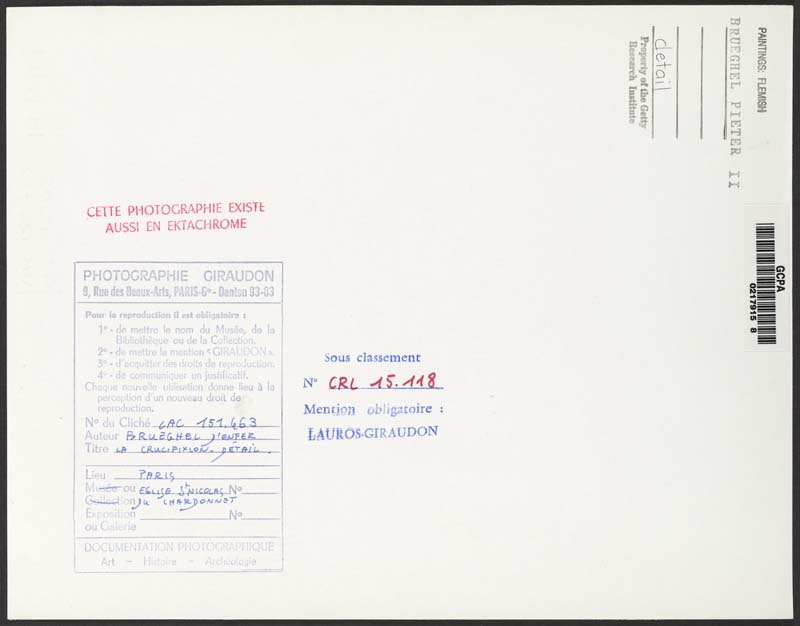 PAINTINGS: FLEMISH
BRUEGHEL PIETER II
detail
Property of the Getty
Research Institute
GCPA
0217915 8
CETTE PHOTOGRAPHIE EXISTE
AUSSI EN EKTACHROME
PHOTOGRAPHIE GIRAUDON
9, Rue des Beaux-Arts, PARIS-6e - Danton 93-83
Pour la reproduction il est obligatoire :
1° - de mettre le nom du Musée, de la
Bibliothèque ou de la Collection.
2° - de mettre la mention «GIRAUDON».
3° - d'acquitter des droits de reproduction.
4° - de communiquer un justificatif.
Chaque nouvelle utilisation donne lieu à la
perception d'un nouveau droit de
reproduction.
N° du Cliché LAC 151.463
Auteur BRUEGHEL D'ENFER
Titre LA CRUCIFIXION. DETAIL.
Lieu PARIS
Musée ou EGLISE St NICOLAS N°
Collection DU CHARDONNET
Exposition N°
ou Galerie
DOCUMENTATION PHOTOGRAPHIQUE
Art - Histoire - Archéologie
Sous classement
N° CRL 15.118
Mention obligatoire :
LAUROS-GIRAUDON